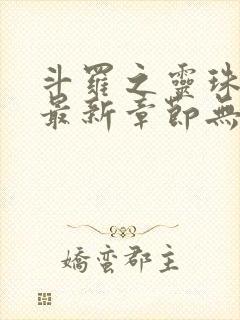 斗羅之靈珠
最新章節無
嬌蠻郡主